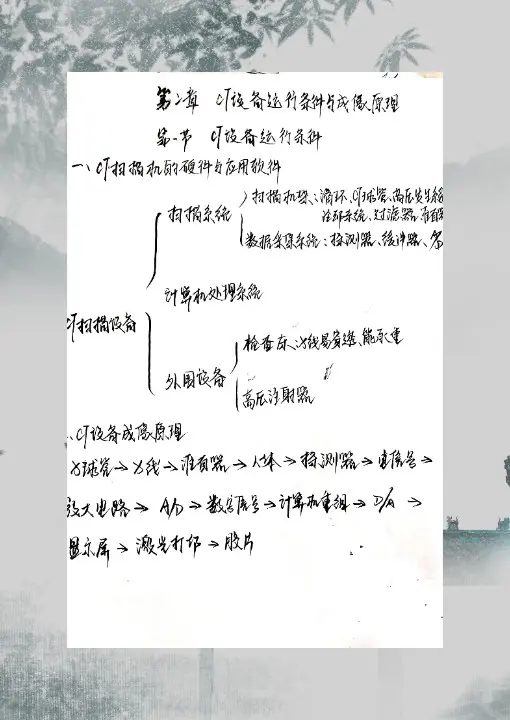 第二章 CT设备运行条件与成像原理
第一节 CT设备运行条件
一、CT扫描机的硬件与应用软件
扫描系统
扫描机架:滑环、CT球管、高压发生
冷却系统、过滤器、准直器
数据采集系统:探测器、缓冲器、
计算机处理系统
CT扫描设备
检查床、X线易穿透、能承重
外围设备
高压注射器
、CT设备成像原理
X球管→X线→准直器→人体→探测器→电信号→
放大电路→A/D→数字信号→计算机重组→D/A→
显示屏→激光打印→胶片